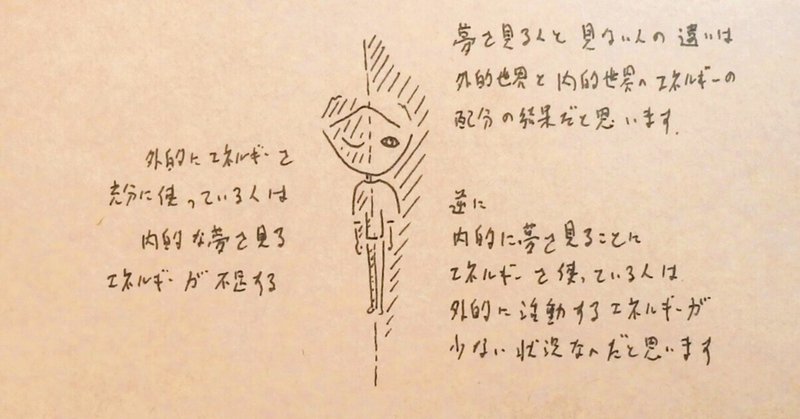 夢を見る人と 見ない人の 違いは
外的世界と内的世界へエネルギーの
配分の結果だと思います.
外的にエネルギーを
充分に使っている人は
内的な夢を見る
エネルギーが不足する
逆に
内的に夢を見ることに
エネルギーを使っている人は
外的に活動するエネルギーが
少ない状況なんだと思います